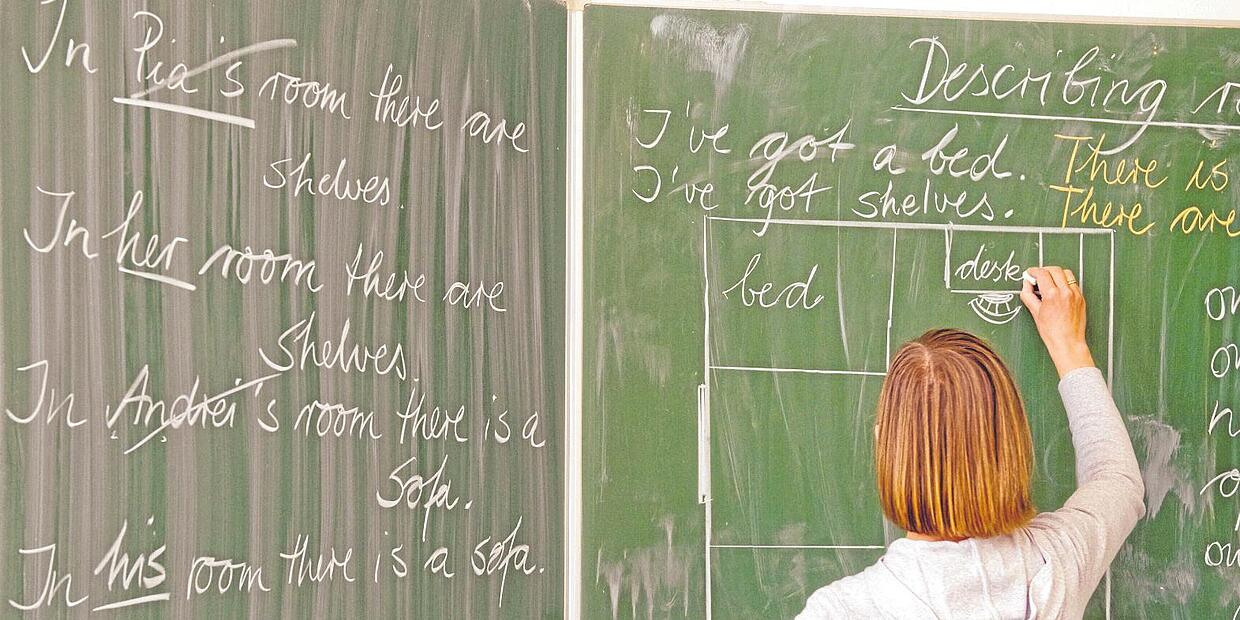 In Pia's room there are
shelves.
In her room there are
shelves.
In Andrei's room there is a
sofa.
In his room there is a sofa.
Describing
I've got a bed. There is
I've got shelves. There are
bed
desk